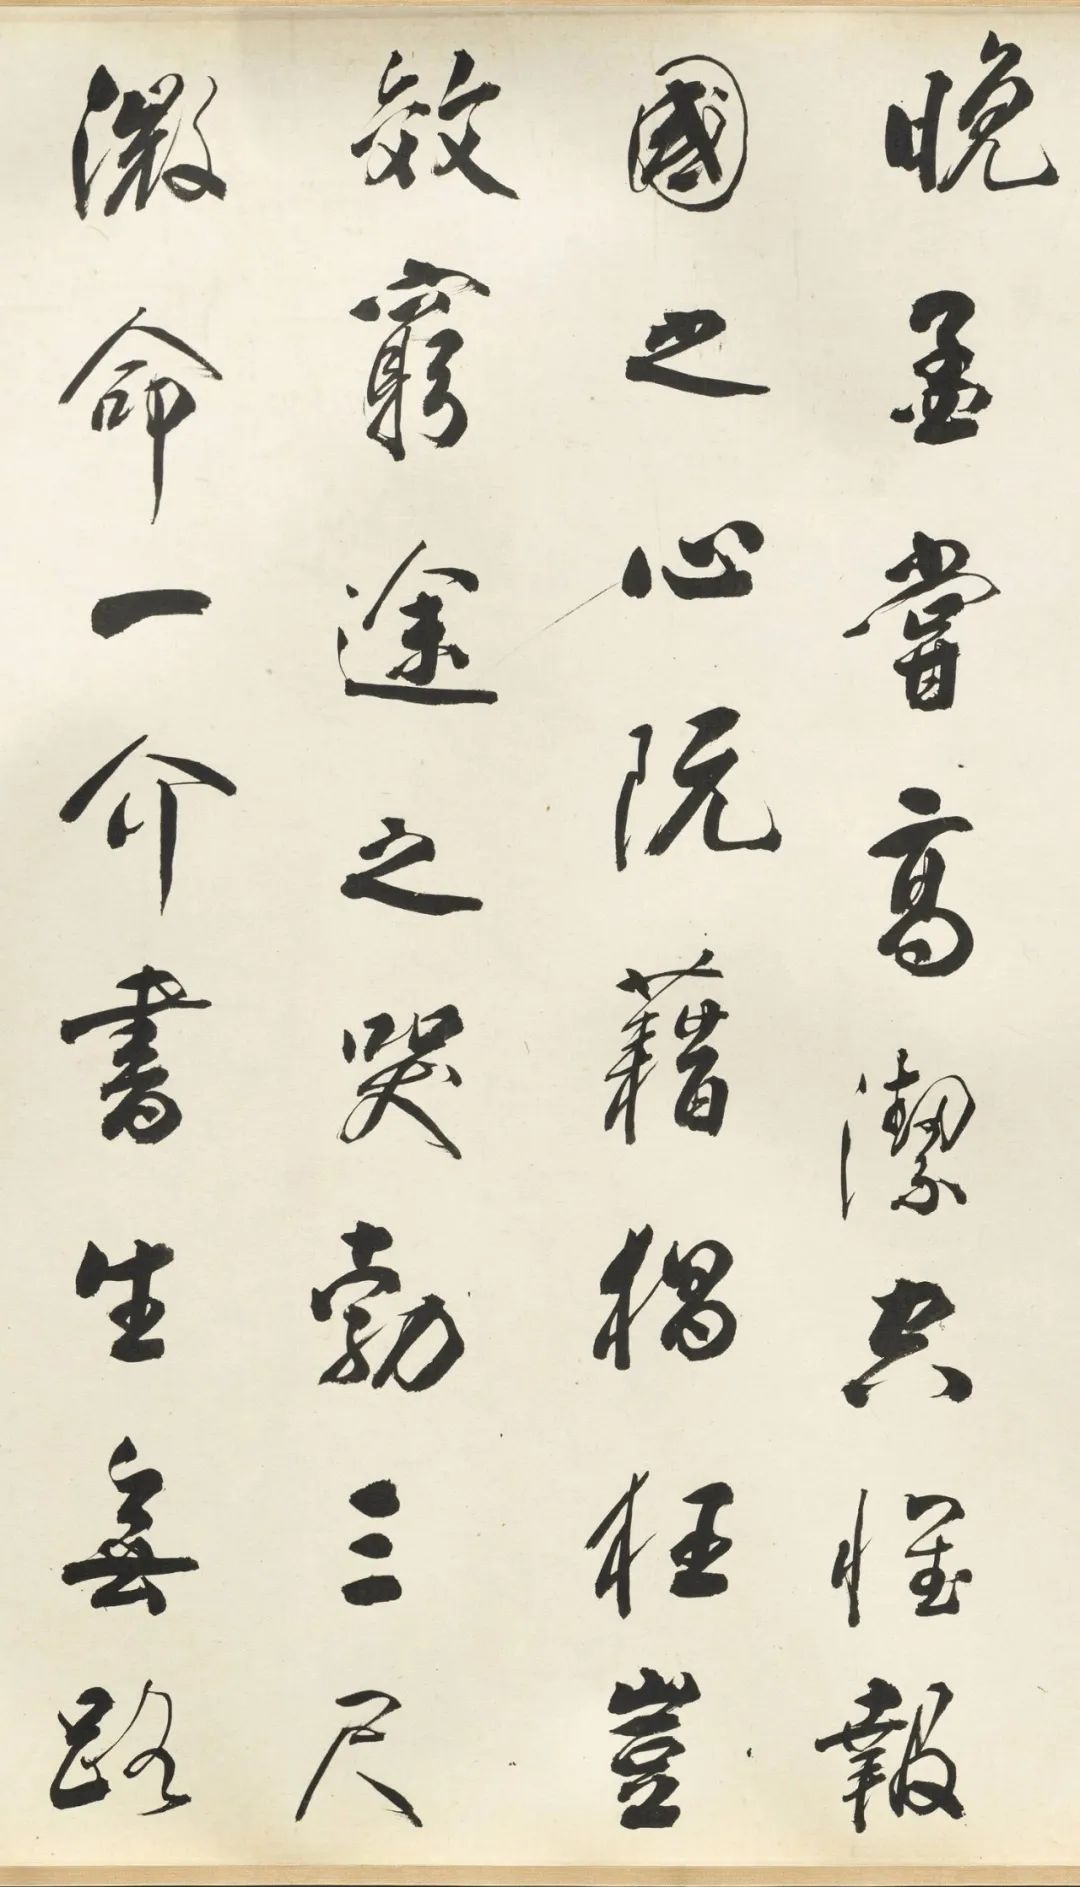 晚孟嘗高潔空懷報
國之心阮藉猖狂豈
效窮途之哭勃三尺
微命一介書生無路